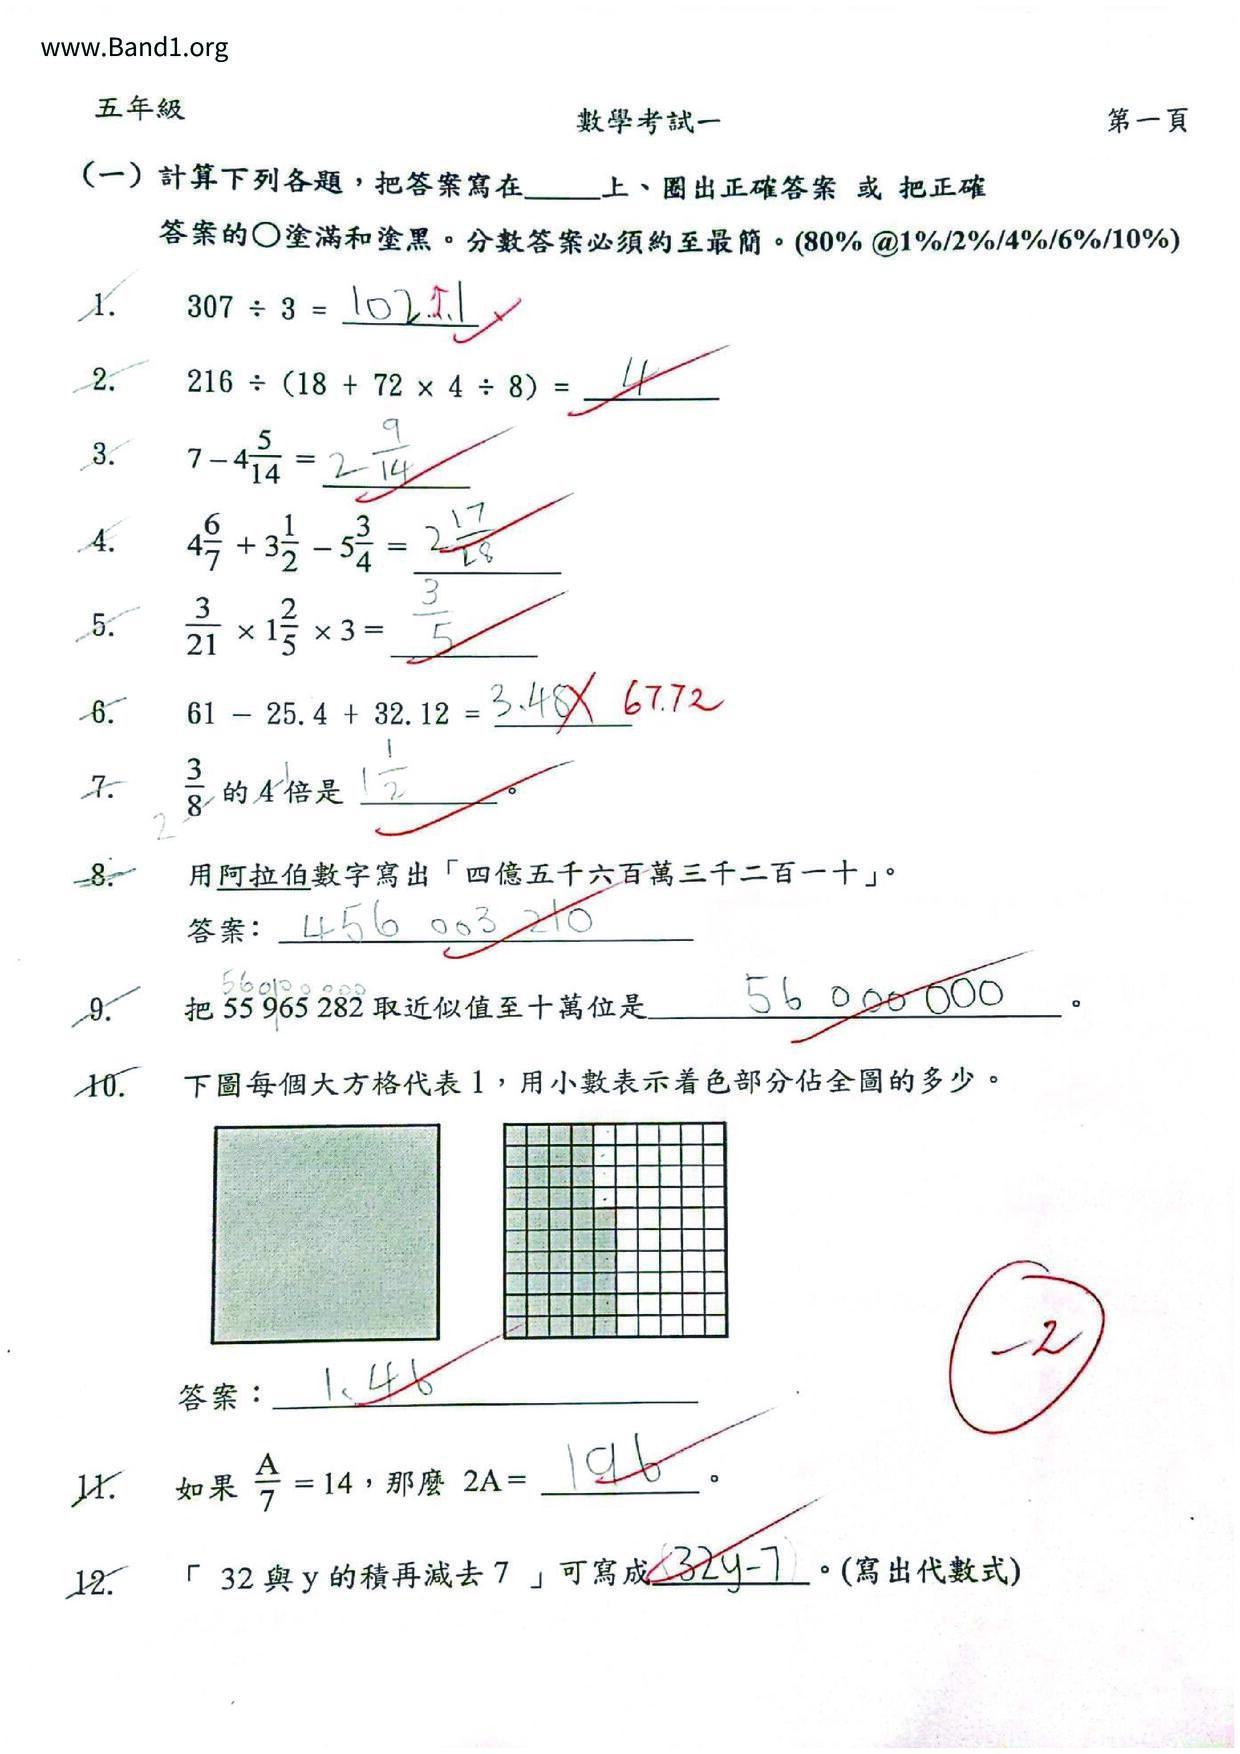 www.Band1.org
五年級 數學考試一 第一頁
(一) 計算下列各題，把答案寫在_____上、圈出正確答案 或 把正確
答案的〇塗滿和塗黑。分數答案必須約至最簡。(80% @1%/2%/4%/6%/10%)
1. 307 ÷ 3 = 102...1
2. 216 ÷ (18 + 72 × 4 ÷ 8) = 4
3. 7 – 4 5/14 = 2 9/14
4. 4 6/7 + 3 1/2 – 5 3/4 = 2 17/28
5. 3/21 × 1 2/5 × 3 = 3/5
6. 61 – 25.4 + 32.12 = 3.48 67.72
7. 3/8 的 4 倍是 1 1/2 。
2
1
8. 用阿拉伯數字寫出「四億五千六百萬三千二百一十」。
答案： 456 003 210
56 000 000
9. 把 55 965 282 取近似值至十萬位是 56 000 000 。
10. 下圖每個大方格代表 1，用小數表示着色部分佔全圖的多少。
-2
答案： 1.46
11. 如果 A/7 = 14，那麼 2A = 196 。
12. 「 32 與 y 的積再減去 7 」可寫成 (32y-7) 。(寫出代數式)